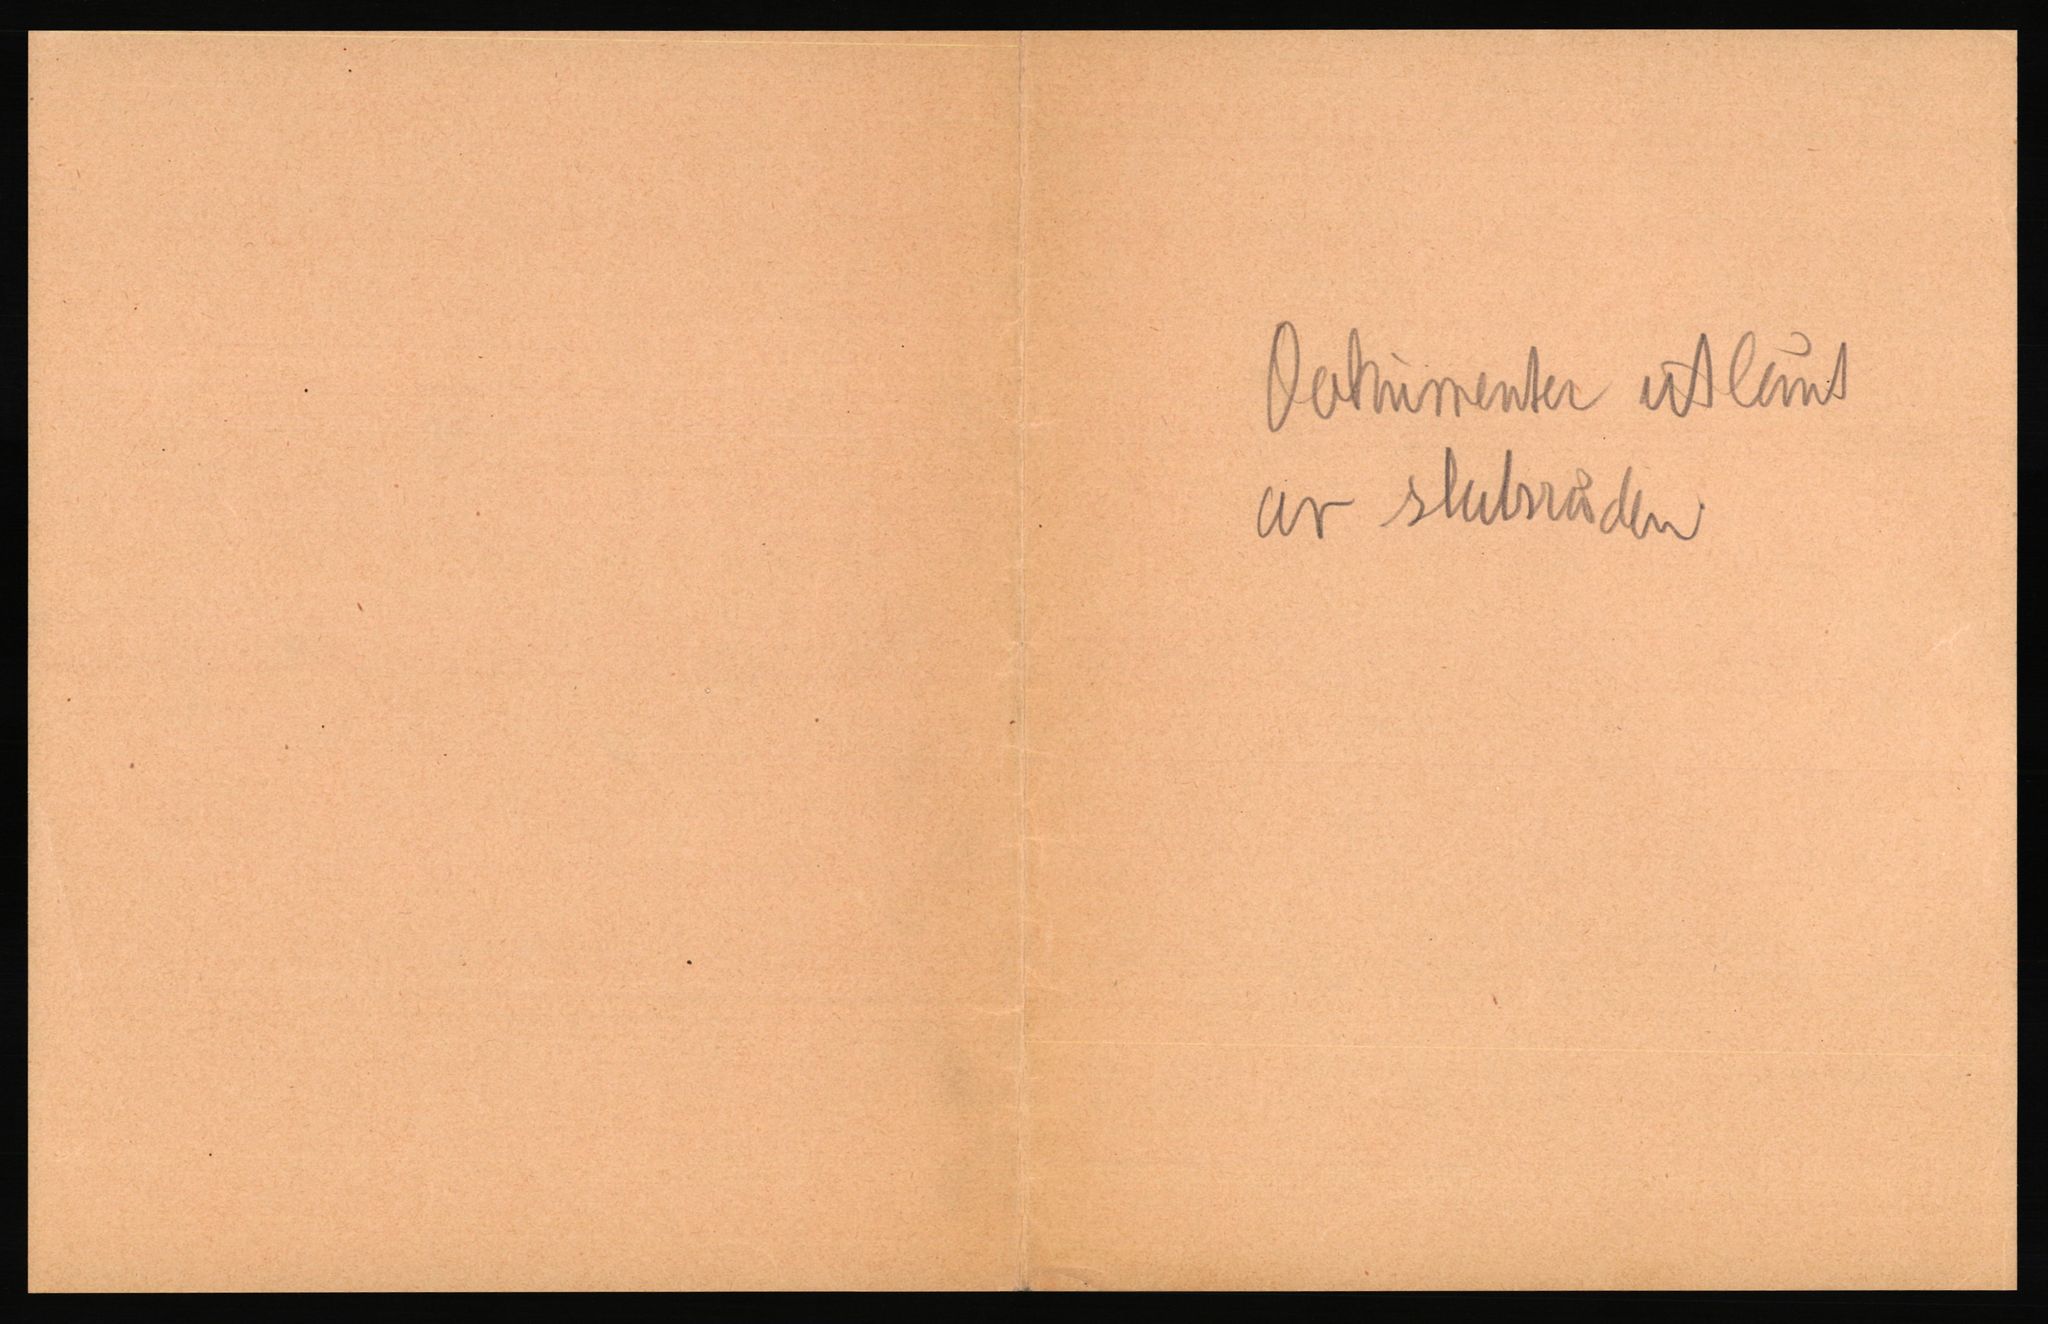 Dokumenter utlånt
av statsråden